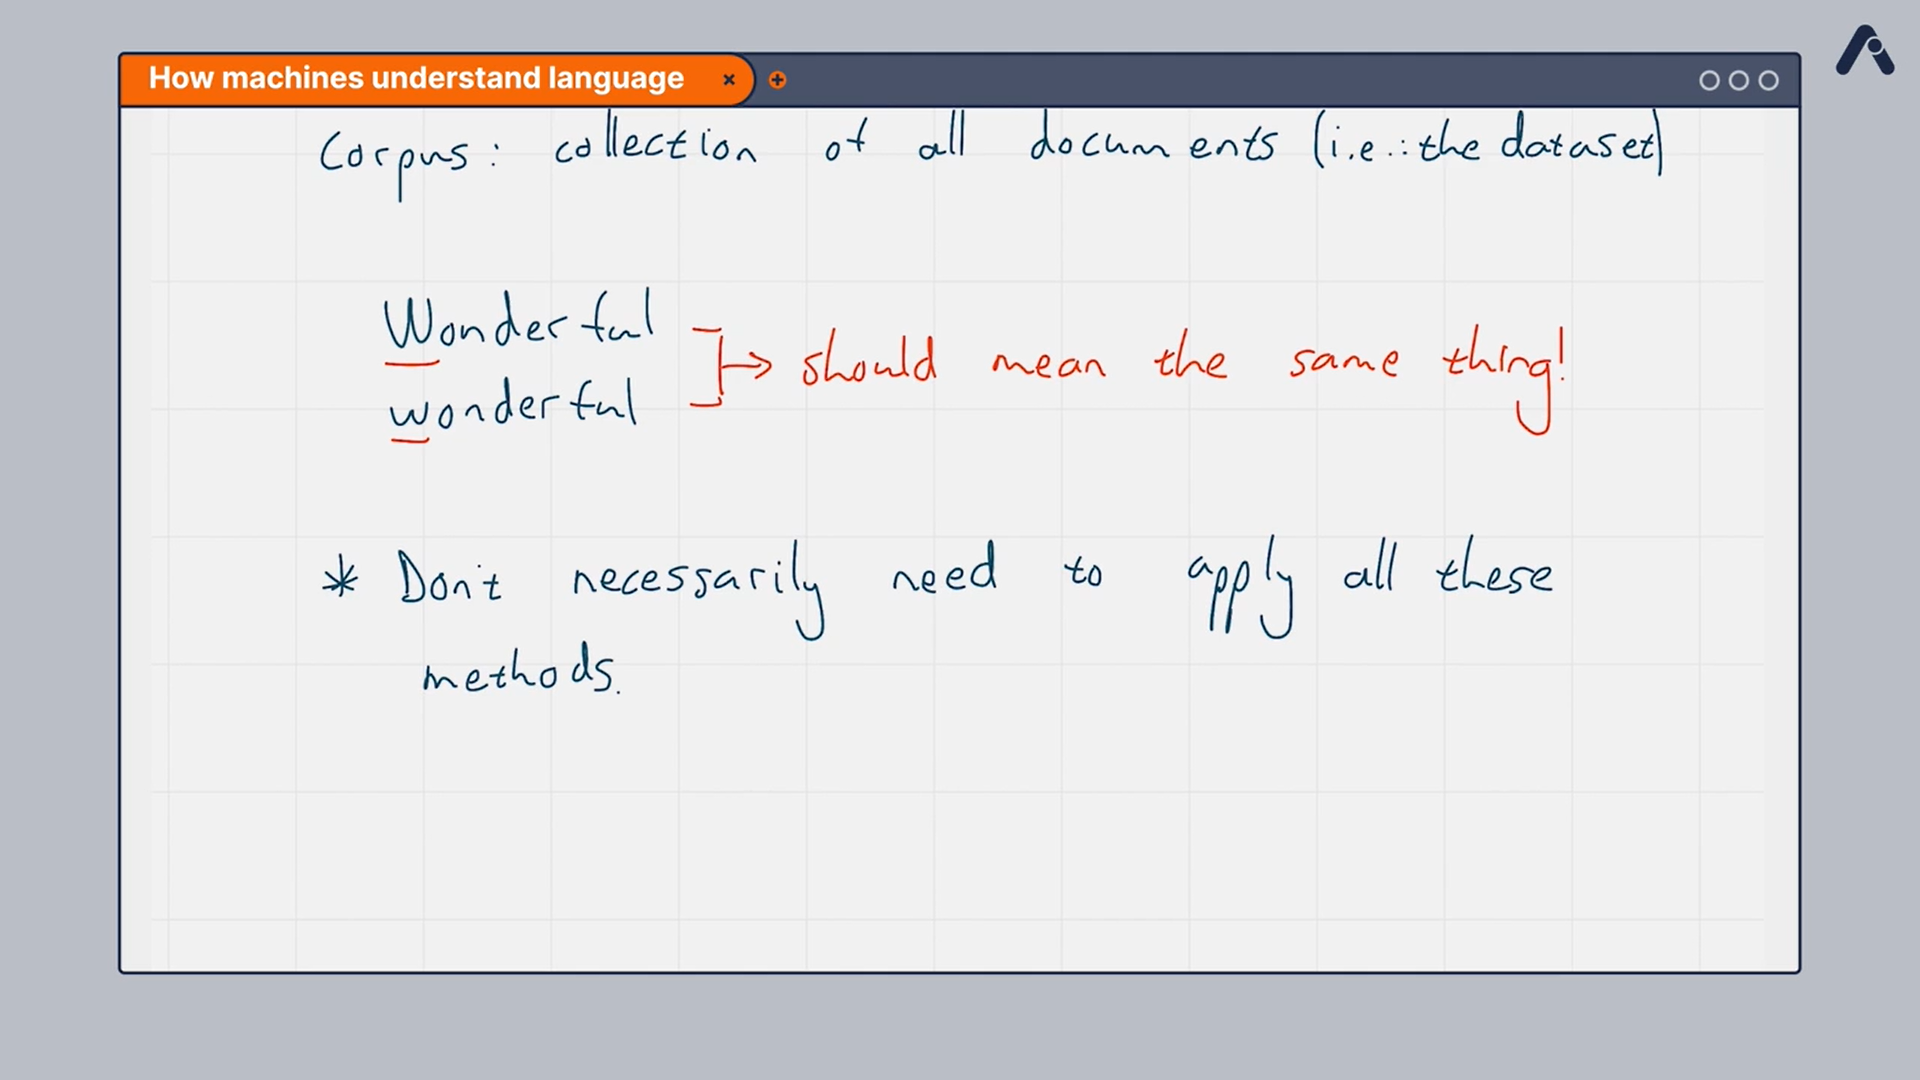 How machines understand language
Corpus: collection of all documents (i.e.: the dataset)
Wonderful
wonderful
should mean the same thing!
* Don't necessarily need to apply all these
methods.